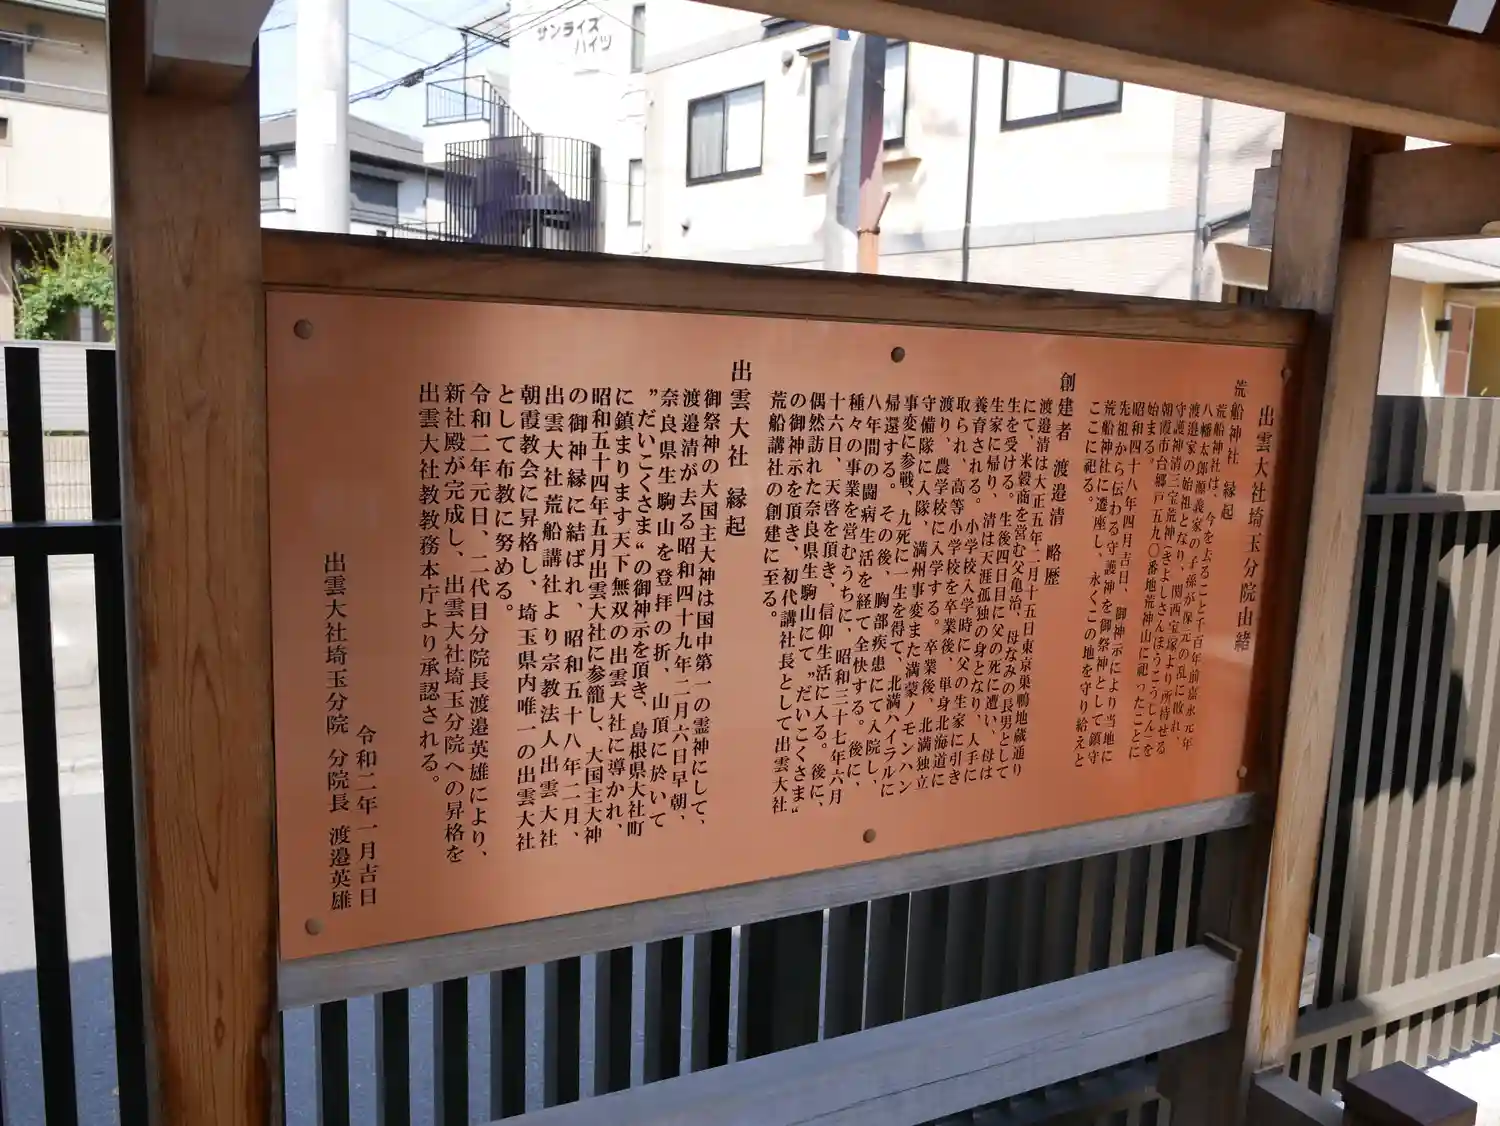 サンライズ
ハイツ
出雲大社埼玉分院由緒
荒船神社 縁起
荒船神社は、今を去ること千百年前嘉永元年
八幡太郎源義家の子孫が保元の乱に敗れ、
渡邉家の始祖となり、関西宝塚より所持せる
守護神清三宝荒神(きよしさんぼうこうじん)を
朝霞市台郷戸五九〇番地荒神山に祀ったことに
始まる。
昭和四十八年四月吉日、御神示により当地に
先祖から伝わる守護神を御祭神として鎮守
荒船神社に遷座し、永くこの地を守り給えと
ここに祀る。
創建者 渡邉清 略歴
渡邉清は大正五年二月十五日東京巣鴨地蔵通り
にて、米穀商を営む父亀治、母なみの長男として
生を受ける。生後四日目に父の死に遭い、母は
生家に帰り、清は天涯孤独の身となり、人手に
養育される。小学校入学時に父の生家に引き
取られ、高等小学校を卒業後、単身北海道に
渡り、農学校に入学する。卒業後、北満独立
守備隊に入隊、満州事変また満蒙ノモンハン
事変に参戦、九死に一生を得て、北満ハイラルに
帰還する。その後、胸部疾患にて入院し、
八年間の闘病生活を経て全快する。後に、
種々の事業を営むうちに、昭和三十七年六月
十六日、天啓を頂き、信仰生活に入る。後に、
偶然訪れた奈良県生駒山にて〝だいこくさま〟
の御神示を頂き、初代講社長として出雲大社
荒船講社の創建に至る。
出雲大社 縁起
御祭神の大国主大神は国中第一の霊神にして、
渡邉清が去る昭和四十九年二月六日早朝、
奈良県生駒山を登拝の折、山頂に於いて
〝だいこくさま〟の御神示を頂き、島根県大社町
に鎮まります天下無双の出雲大社に導かれ、
昭和五十四年五月出雲大社に参籠し、大国主大神
の御神縁に結ばれ、昭和五十八年二月、
出雲大社荒船講社より宗教法人出雲大社
朝霞教会に昇格し、埼玉県内唯一の出雲大社
として布教に努める。
令和二年元日、二代目分院長渡邉英雄により、
新社殿が完成し、出雲大社埼玉分院への昇格を
出雲大社教教務本庁より承認される。
令和二年一月吉日
出雲大社埼玉分院 分院長 渡邉英雄